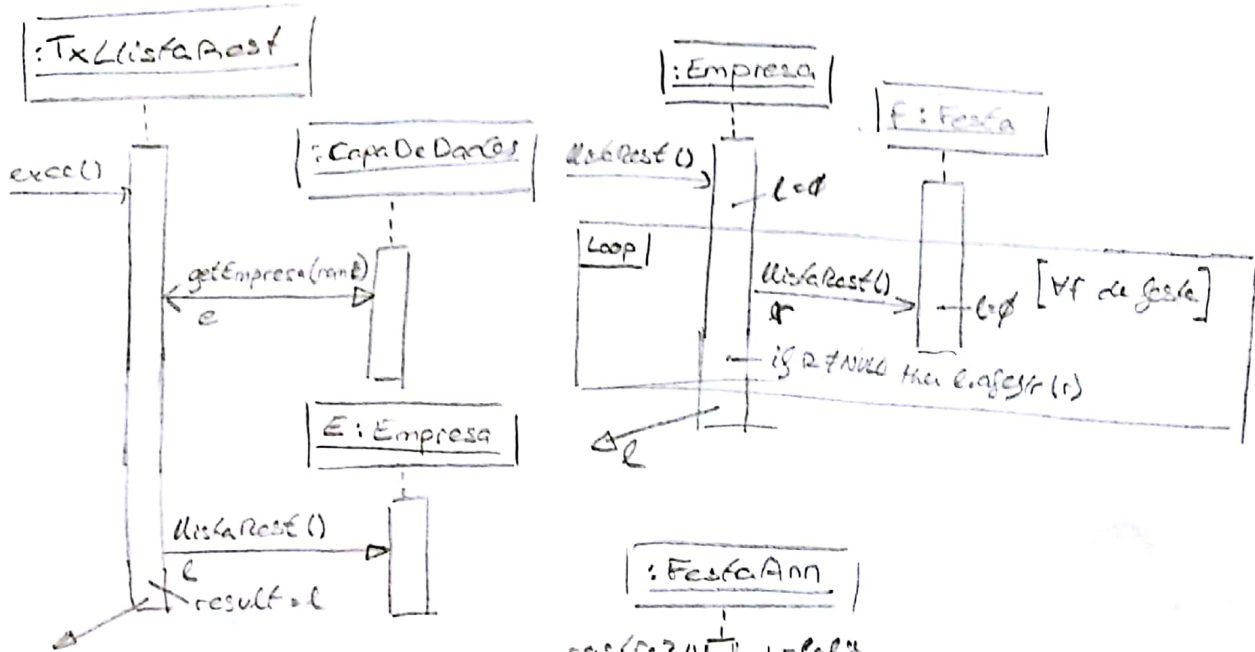 :TxLlistaRest
exec()
:CapaDeDades
getEmpresa(nomE)
e
E:Empresa
llistaRest()
l
result = l
:Empresa
f:Festa
llistaRest()
l=ø
Loop
llistaRest()
r
l=ø
[∀f de festa]
if R≠NULL then l.afegir(r)
l
:FestaAnn